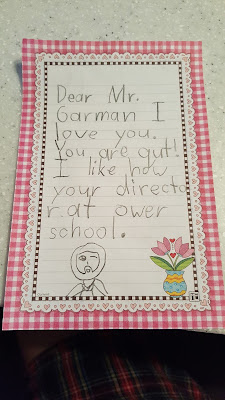 Dear Mr.
Garman I
love you.
You are gut!
I like how
your directo
r.at ower
school.